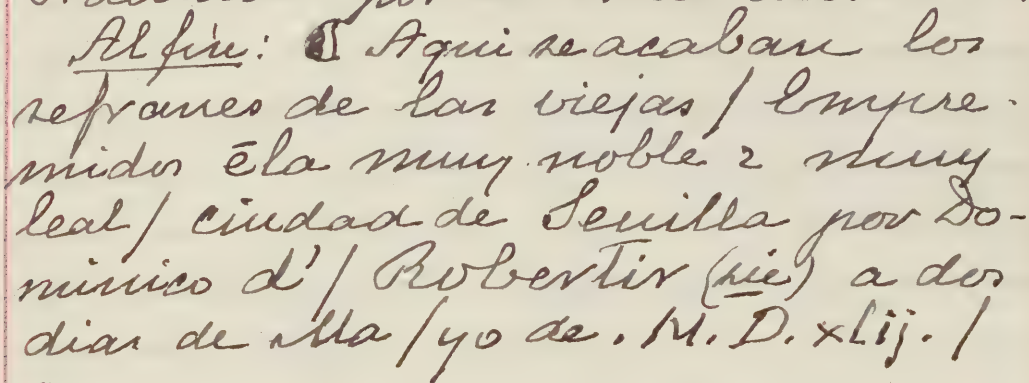 Al fin: ¶ Aqui se acaban los
refranes de las viejas / Empre-
midos ēla muy noble ⁊ muy
leal / ciudad de Seuilla por Do-
minico d' / Robertis (sic) a dos
dias de Ma / yo de . M. D. xlij. /